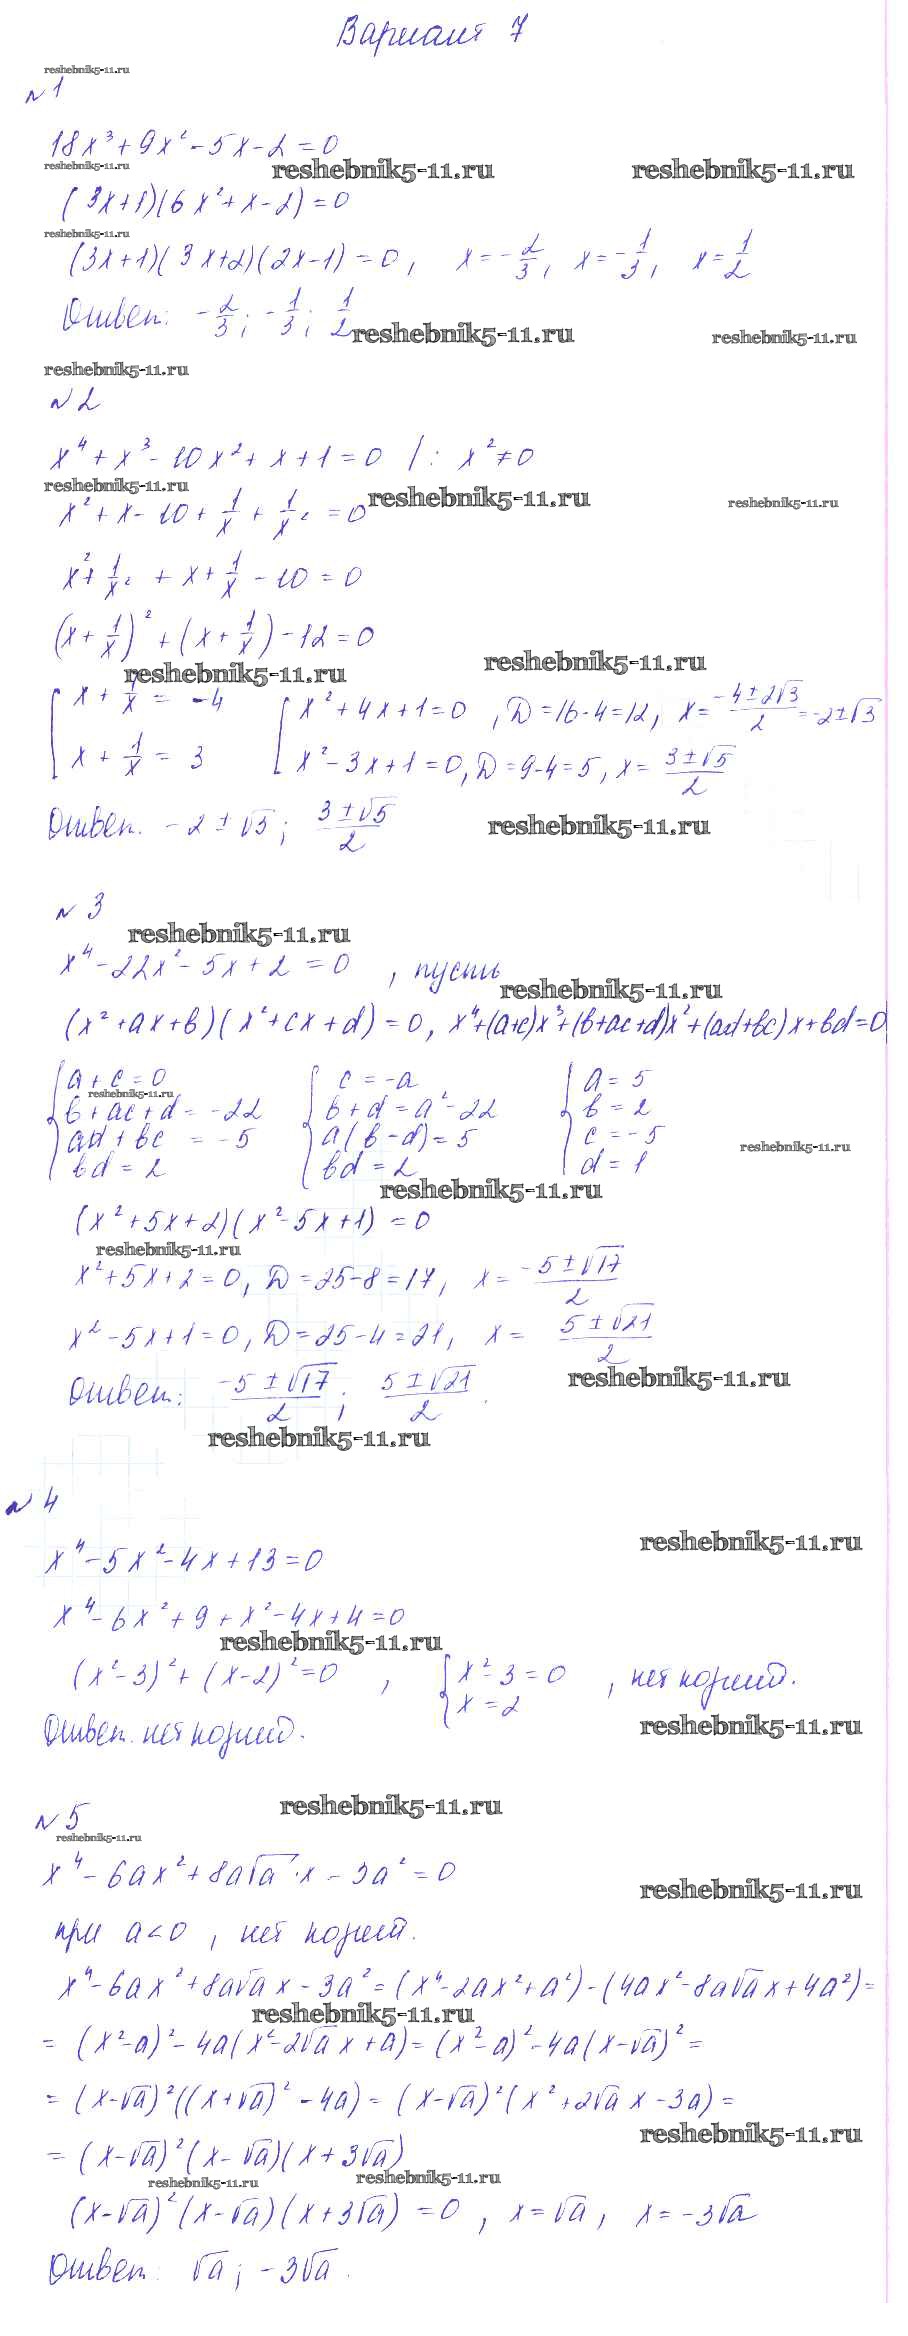 Вариант 7
reshebnik5-11.ru
№1
18x³ + 9x² - 5x - 2 = 0
reshebnik5-11.ru reshebnik5-11.ru reshebnik5-11.ru
(3x+1)(6x²+x-2) = 0
reshebnik5-11.ru
(3x+1)(3x+2)(2x-1) = 0, x = -2/3, x = -1/3, x = 1/2
Ответ: -2/3; -1/3; 1/2
reshebnik5-11.ru reshebnik5-11.ru
reshebnik5-11.ru
№2
x⁴ + x³ - 10x² + x + 1 = 0 /: x² ≠ 0
reshebnik5-11.ru reshebnik5-11.ru reshebnik5-11.ru
x² + x - 10 + 1/x + 1/x² = 0
x² + 1/x² + x + 1/x - 10 = 0
(x + 1/x)² + (x + 1/x) - 12 = 0
reshebnik5-11.ru reshebnik5-11.ru
[x + 1/x = -4 [x² + 4x + 1 = 0, D = 16-4 = 12, x = (-4±2√3)/2 = -2±√3
x + 1/x = 3 x² - 3x + 1 = 0, D = 9-4 = 5, x = (3±√5)/2
Ответ. -2±√3; (3±√5)/2
reshebnik5-11.ru
№3
reshebnik5-11.ru
x⁴ - 22x² - 5x + 2 = 0, пусть
reshebnik5-11.ru
(x²+ax+b)(x²+cx+d) = 0, x⁴+(a+c)x³+(b+ac+d)x²+(ad+bc)x+bd=0
{a + c = 0 {c = -a {a = 5
reshebnik5-11.ru
b + ac + d = -22 b + d = a² - 22 b = 2
ad + bc = -5 a(b-d) = 5 c = -5
reshebnik5-11.ru
bd = 2 bd = 2 d = 1
reshebnik5-11.ru
(x²+5x+2)(x²-5x+1) = 0
reshebnik5-11.ru
x²+5x+2 = 0, D = 25-8 = 17, x = (-5±√17)/2
x²-5x+1 = 0, D = 25-4 = 21, x = (5±√21)/2
reshebnik5-11.ru
Ответ: (-5±√17)/2; (5±√21)/2.
reshebnik5-11.ru
№4
reshebnik5-11.ru
x⁴ - 5x² - 4x + 13 = 0
x⁴ - 6x² + 9 + x² - 4x + 4 = 0
reshebnik5-11.ru
(x²-3)² + (x-2)² = 0, {x² - 3 = 0, нет корней.
x = 2
Ответ. нет корней.
reshebnik5-11.ru
reshebnik5-11.ru
№5
reshebnik5-11.ru
x⁴ - 6ax² + 8a√a·x - 3a² = 0
reshebnik5-11.ru
при a<0, нет корней.
x⁴ - 6ax² + 8a√a x - 3a² = (x⁴-2ax²+a²) - (4ax²-8a√a x+4a²) =
reshebnik5-11.ru
= (x²-a)² - 4a(x²-2√a x+a) = (x²-a)² - 4a(x-√a)² =
= (x-√a)²((x+√a)² - 4a) = (x-√a)²(x²+2√a x - 3a) =
reshebnik5-11.ru
= (x-√a)²(x-√a)(x+3√a)
reshebnik5-11.ru reshebnik5-11.ru
(x-√a)²(x-√a)(x+3√a) = 0, x = √a, x = -3√a
Ответ: √a; -3√a.